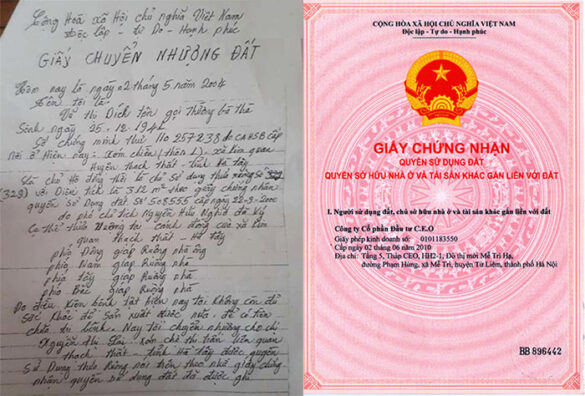 Cộng Hoà xã Hội chủ nghĩa Việt Nam
Độc lập - Tự Do - Hạnh phúc
GIẤY CHUYỂN NHƯỢNG ĐẤT
Hôm nay là ngày 02 tháng 5 năm 2004
Tên tôi là
Vũ thị Dích tên gọi Thường bà thà
Sinh ngày 25.12.194
Số chứng minh thư 110257238 do CAHSB cấp
Nơi ở Hiện nay: Xóm chiến (thôn 2) - xã liên quan
Huyện thạch thất - tỉnh Hà Tây
Tôi chủ Hộ đứng tên là chủ Sử dụng thửa ruộng số
(329) với Diện tích là 312 m² theo giấy chứng nhận
quyền sử Dụng đất số 508555 cấp ngày 22-9-2000
do phó chủ tịch Nguyễn Hữu Nghĩa đã ký
Cụ thể thửa Ruộng tại cánh đồng của xã liên
quan thạch thất - Hà Tây
phía Đông giáp Ruộng nhà ông
phía Nam giáp Ruộng nhà
phía Tây giáp Ruộng nhà
phía Bắc giáp Ruộng nhà
Do điều kiện bệnh tật hiện nay tôi không còn đủ
sức khoẻ để sản xuất được nữa, để có tiền
chữa trị bệnh. Nay tôi chuyển nhượng cho chị
Nguyễn thị xóm chè thị trấn liên quan
thạch thất - tỉnh Hà Tây được quyền
Sử Dụng thửa Ruộng nói trên theo như giấy chứng
nhận quyền sử dụng đất đã được ghi
CỘNG HÒA XÃ HỘI CHỦ NGHĨA VIỆT NAM
Độc lập - Tự do - Hạnh phúc
GIẤY CHỨNG NHẬN
QUYỀN SỬ DỤNG ĐẤT
QUYỀN SỞ HỮU NHÀ Ở VÀ TÀI SẢN KHÁC GẮN LIỀN VỚI ĐẤT
I. Người sử dụng đất, chủ sở hữu nhà ở và tài sản khác gắn liền với đất
Công ty Cổ phần Đầu tư C.E.O
Giấy phép kinh doanh số: 0101183550
Cấp ngày 02 tháng 06 năm 2010
Địa chỉ: Tầng 5, Tháp CEO, HH2-1, Đô thị mới Mễ Trì Hạ,
đường Phạm Hùng, xã Mễ Trì, huyện Từ Liêm, thành phố Hà Nội
BB 896442